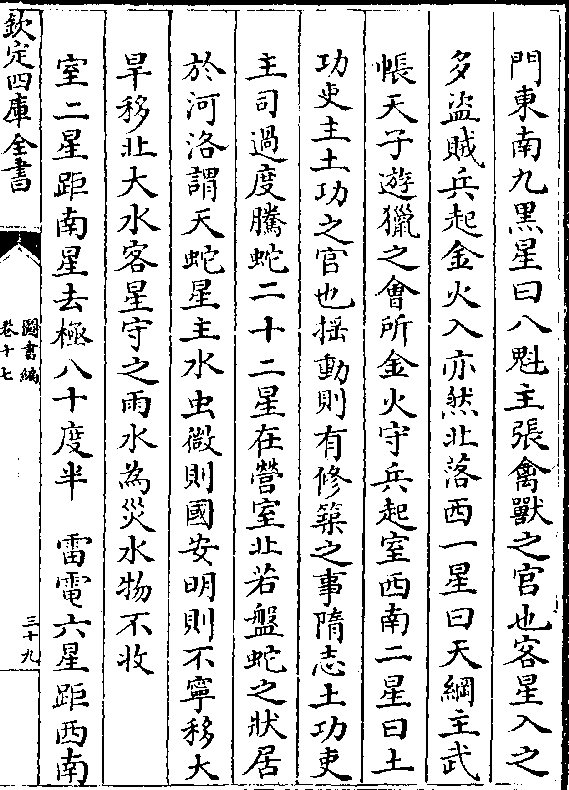 門東南九黑星曰八魁主張禽獸之官也客星入之
多盜賊兵起金火入亦然北落西一星曰天綱主武
帳天子遊獵之會所金火守兵起室西南二星曰土
功吏主土功之官也揺動則有修築之事隋志土功吏
主司過度騰蛇二十二星在營室北若盤蛇之狀居
於河洛謂天蛇星主水虫微則國安明則不寧移大
旱移北大水客星守之雨水為災水物不收
室二星距南星去極八十度半　雷電六星距西南
欽定四庫全書
圖書編
卷十七
三十九